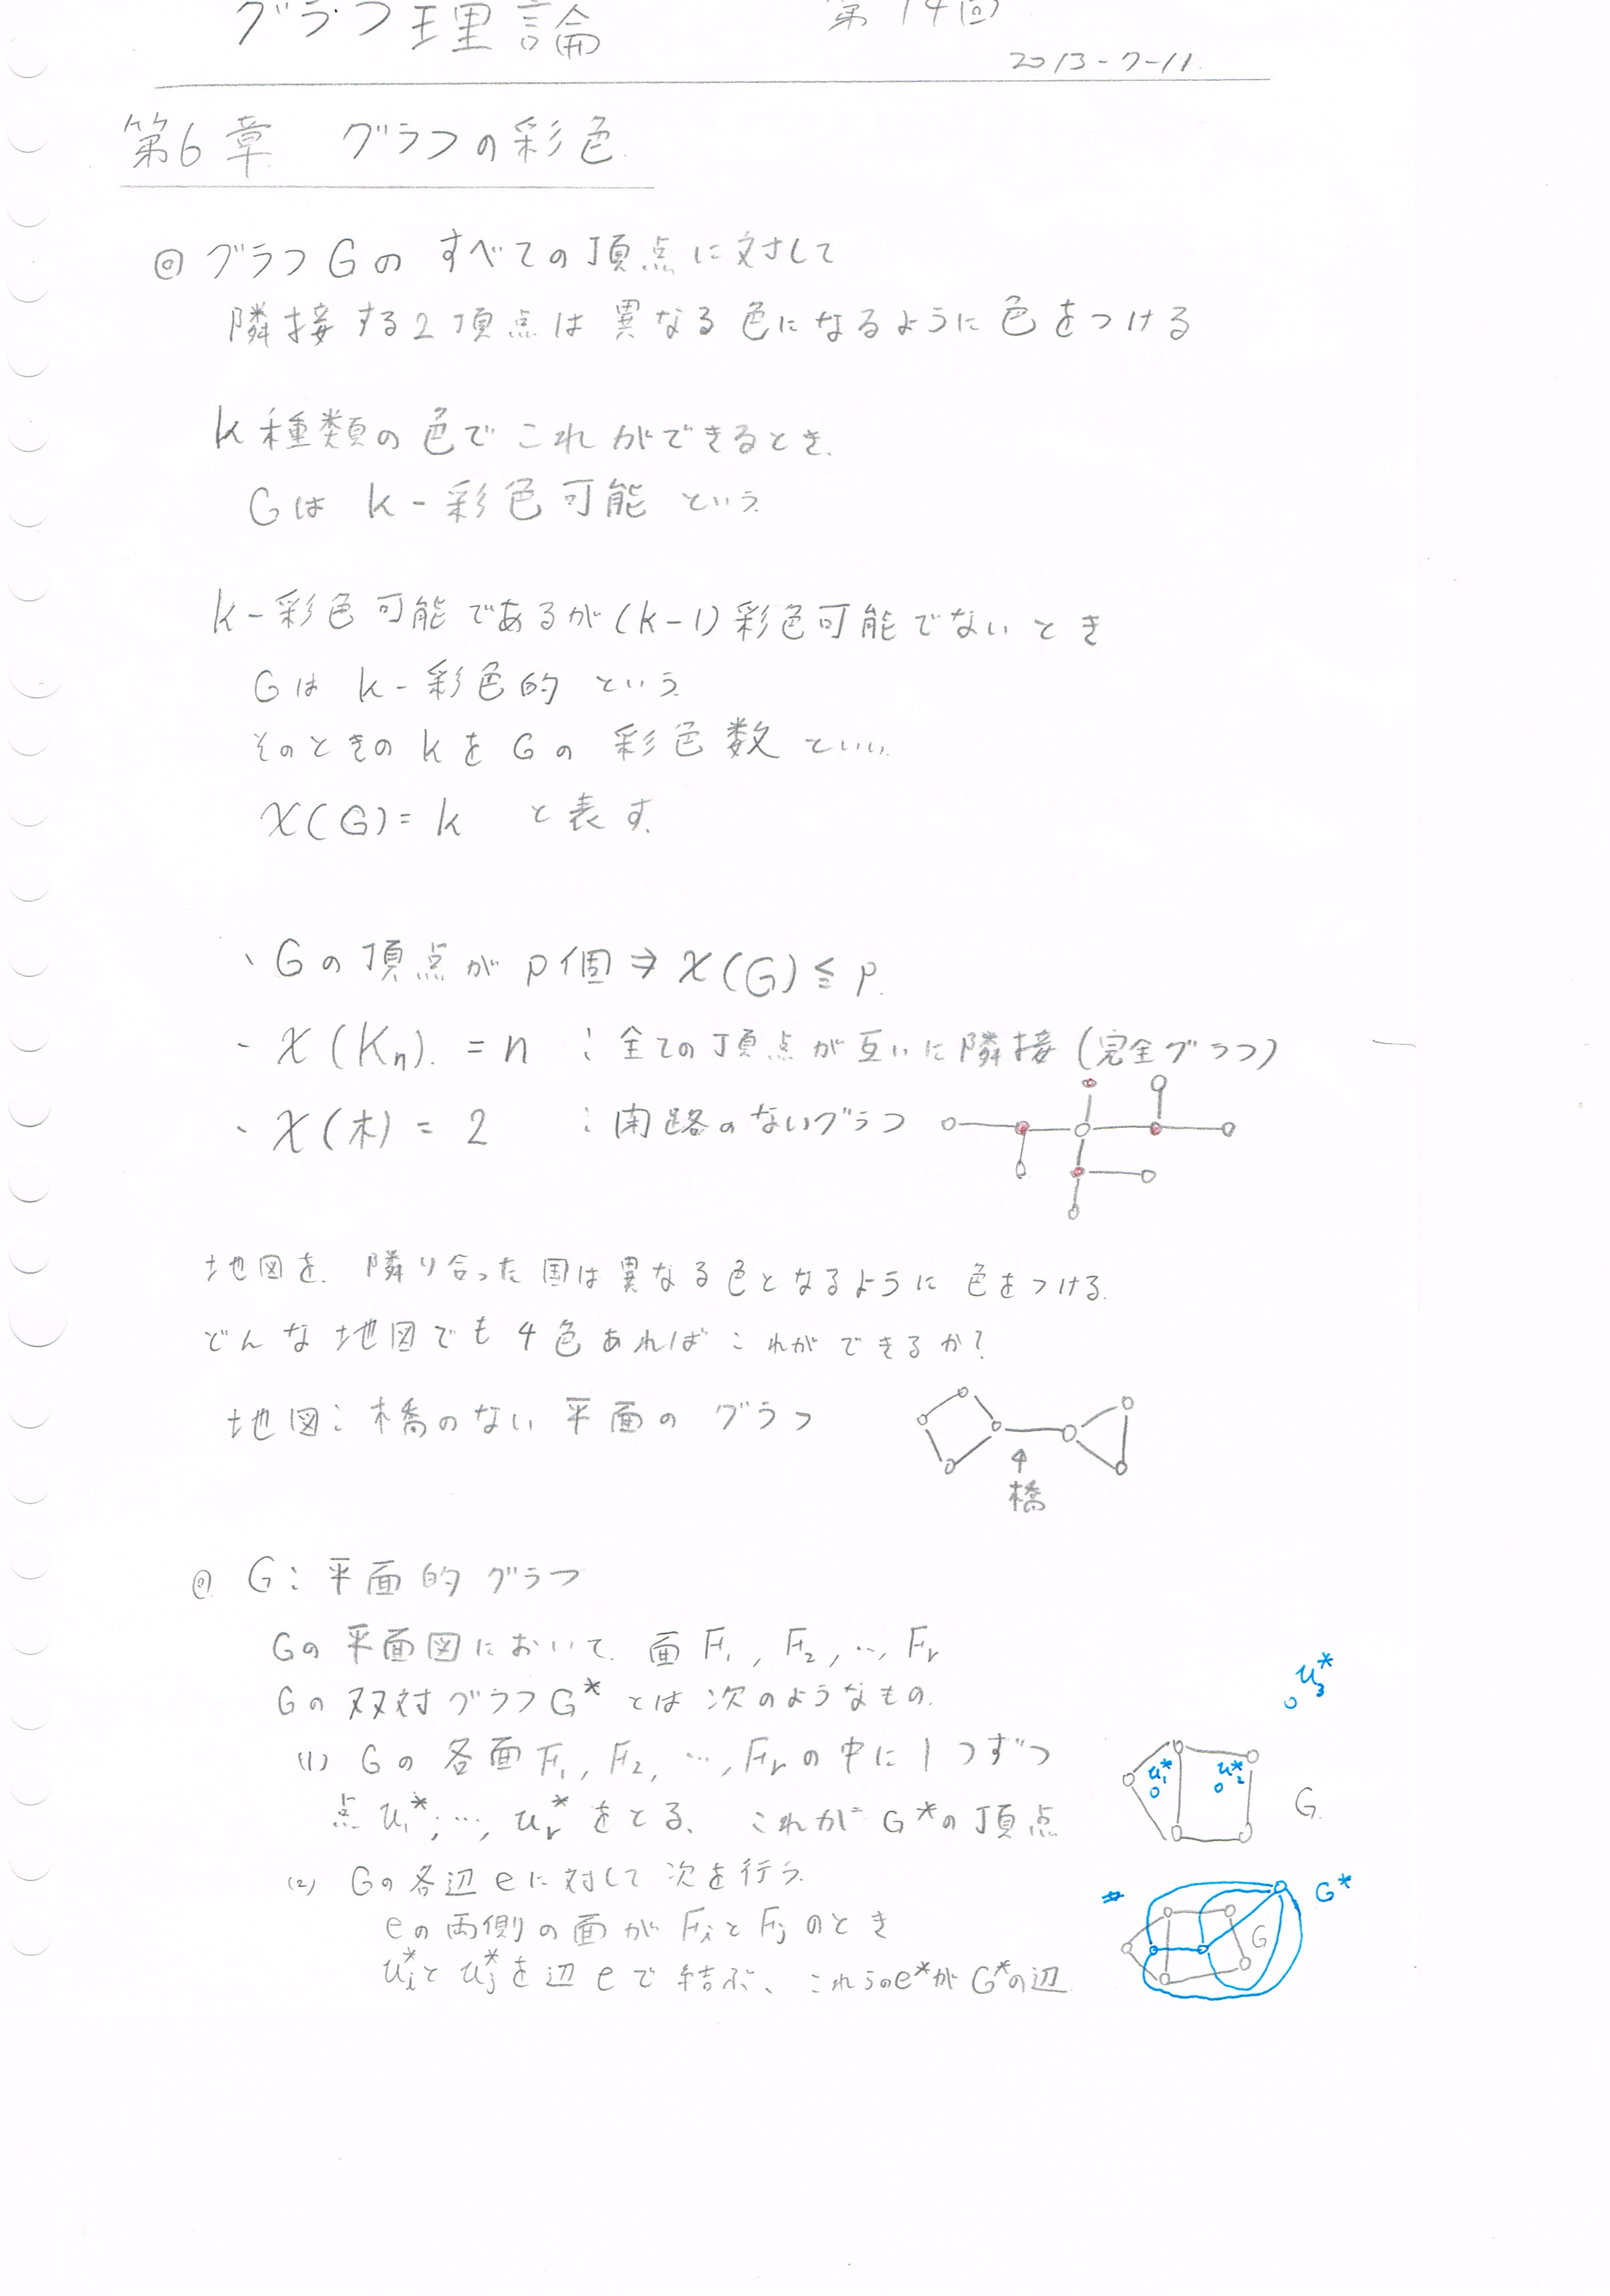 グラフ理論 第14回
2013-7-11.
第6章 グラフの彩色
◎ グラフGの すべての頂点に対して
隣接する2頂点は異なる色になるように色をつける
k種類の色でこれができるとき.
Gは k-彩色可能 という.
k-彩色可能であるが(k-1)彩色可能でないとき
Gは k-彩色的 という.
そのときの kを Gの 彩色数 といい.
χ(G)=k と表す.
・Gの頂点が p個 ⇒ χ(G)≦p.
・χ(Kn). = n : 全ての頂点が互いに隣接 (完全グラフ)
・χ(木) = 2 : 閉路のないグラフ
地図を. 隣り合った国は異なる色となるように色をつける.
どんな地図でも4色あればこれができるか?
地図: 橋のない平面のグラフ
橋
◎ G: 平面的グラフ
Gの平面図において. 面 F1, F2, …, Fr
Gの双対グラフG*とは次のようなもの.
u3*
(1) Gの各面 F1, F2, …, Frの中に1つずつ
u1* u2*
点 u1*, …, ur* をとる. これが G*の頂点
G.
(2) Gの各辺 eに対して次を行う.
G*
eの両側の面が FiとFjのとき
G
ui*と uj*を辺 eで結ぶ、これらのe*がG*の辺.